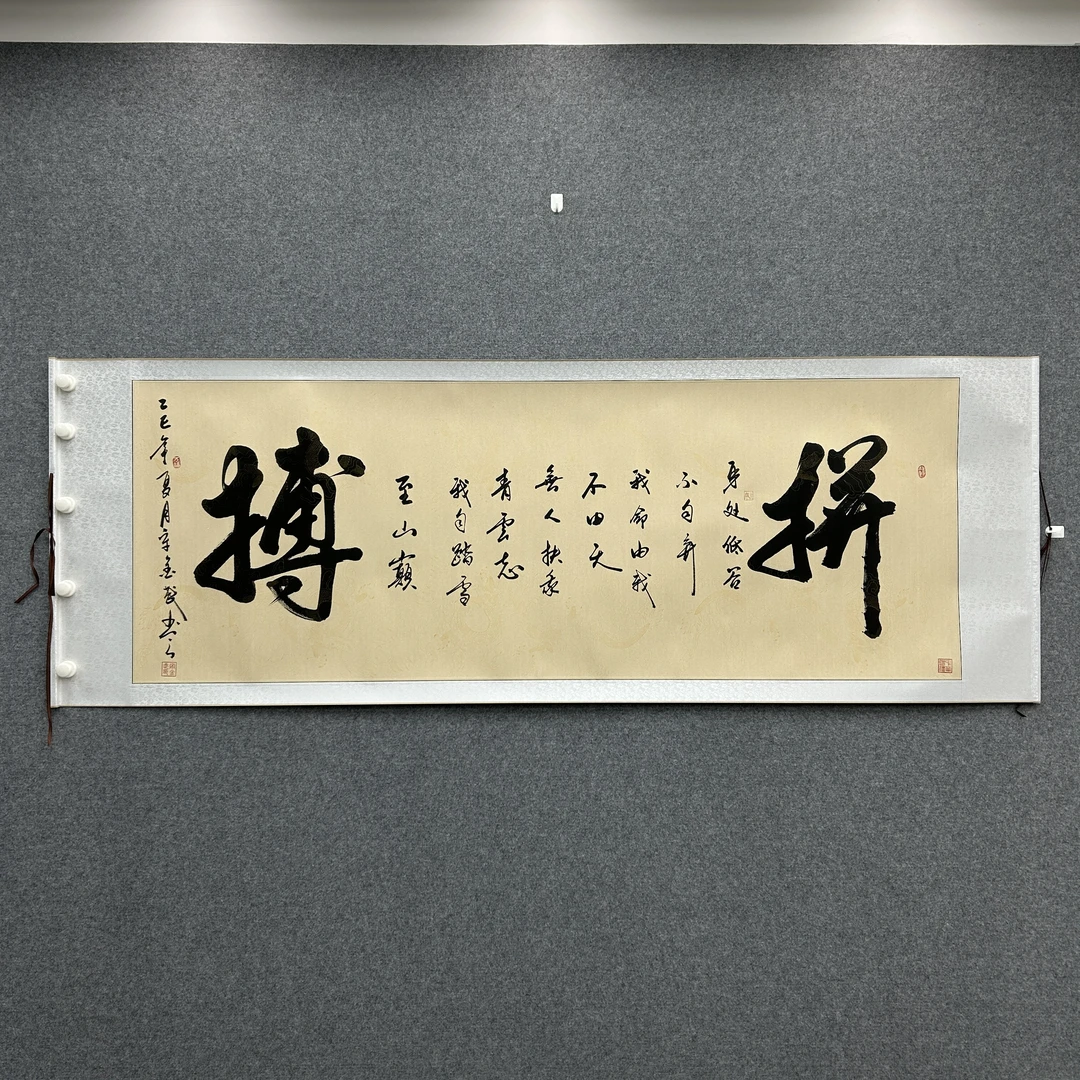 拼
身处低谷
不自弃
我命由我
不由天
無人扶我
青雲志
我自踏雪
至山巔
搏
乙巳年夏月辛金武書